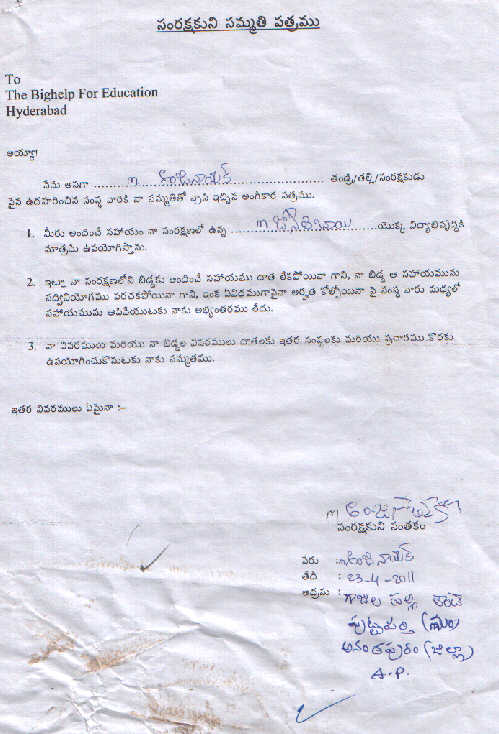 సంరక్షకుని సమ్మతి పత్రము
To
The Bighelp For Education
Hyderabad
అయ్యా
నేను అనగా m. అంజినాయక్ తండ్రి/తల్లి/సంరక్షకుడు
పైన ఉదహరించిన సంస్థ వారికి నా సమ్మతితో వ్రాసి ఇచ్చిన అంగీకార పత్రము.
1. మీరు అందించే సహాయం నా సంరక్షణలో ఉన్న m. యొక్క విద్యాభివృద్ధికి
మాత్రమే ఉపయోగిస్తాను.
2. ఇట్లూ నా సంరక్షణలోని బిడ్డకు అందించే సహాయము దాత లేకపోయినా గాని, నా బిడ్డ ఆ సహాయమును
సద్వినియోగము పరచకపోయినా గాని, ఇంక ఏవిధముగానైనా అర్హత కోల్పోయినా పై సంస్థ వారు మధ్యలో
సహాయమును ఆపివేయుటకు నాకు అభ్యంతరము లేదు.
3. నా వివరములు మరియు నా బిడ్డల వివరములు దాతలకు ఇతర సంస్థలకు మరియు ప్రచారము కొరకు
ఉపయోగించుకొనుటకు నాకు సమ్మతము.
ఇతర వివరములు ఏమైనా :-
m అంజినాయక్
సంరక్షకుని సంతకం
పేరు : m అంజినాయక్
తేది : 23-4-2011
అడ్రసు :
పుట్టపర్తి (మం)
అనంతపురం (జిల్లా)
A.P.